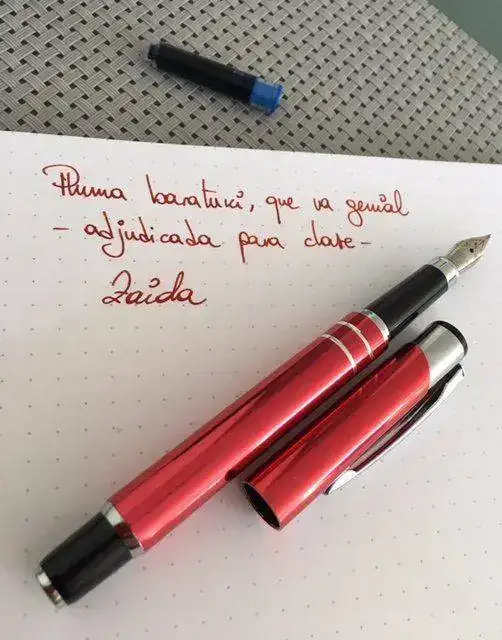 Pluma baratuci, que va genial
- adjudicada para clase -
Zaida